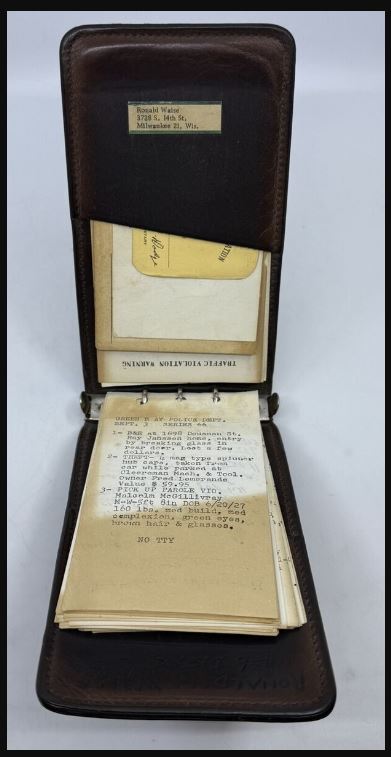 Ronald Waise
3728 S. 14th St.
Milwaukee 21, Wis.
TRAFFIC VIOLATION WARNING
GREEN BAY POLICE DEPT.
DEPT. 3 SERIES 66
1- B&E at 1698 Dousman St.
Ray Janssen home, entry
by breaking glass in
rear door. Lost a few
dollars.
2- THEFT- 4 mag type spinner
hub caps, taken from
car while parked at
Cleereman Mach. & Tool.
Owner Fred Lemorande
Value $ 59.95
3- PICK UP PAROLE VIO.
Malcolm McGillivrey
M-W-5ft 8in DOB 6/20/27
160 lbs. med build, med
complexion, green eyes,
brown hair & glasses.
NO TTY
RONALD